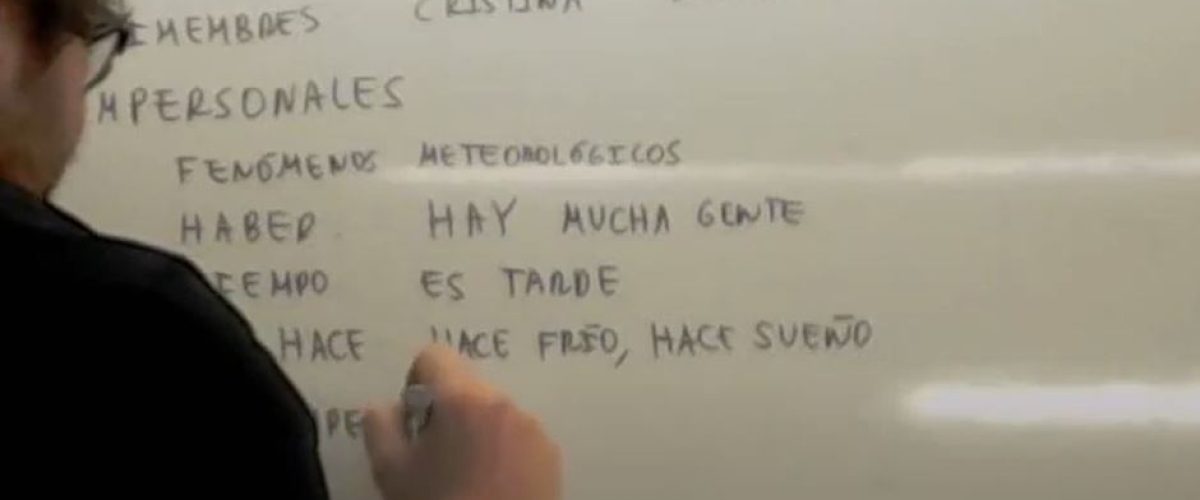 IMEMBRES CRISTINA
MPERSONALES
FENÓMENOS METEOROLÓGICOS
HABER HAY MUCHA GENTE
IEMPO ES TARDE
HACE HACE FRÍO, HACE SUEÑO
PE